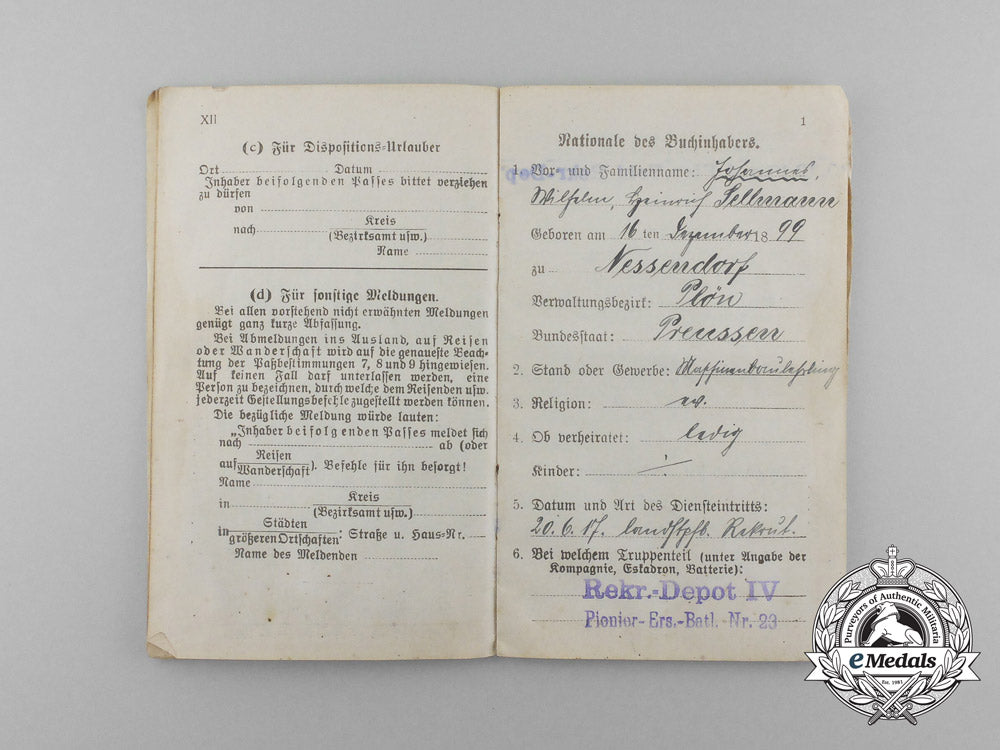 XII
(c) Für Dispositions-Urlauber
Ort Datum
Inhaber beifolgenden Passes bittet verziehen
zu dürfen
von
nach Kreis
(Bezirksamt usw.)
Name
(d) Für sonstige Meldungen.
Bei allen vorstehend nicht erwähnten Meldungen
genügt ganz kurze Abfassung.
Bei Abmeldungen ins Ausland, auf Reisen
oder Wanderschaft wird auf die genaueste Beach-
tung der Paßbestimmungen 7, 8 und 9 hingewiesen.
Auf keinen Fall darf unterlassen werden, eine
Person zu bezeichnen, durch welche dem Reisenden usw.
jederzeit Gestellungsbefehle zugestellt werden können.
Die bezügliche Meldung würde lauten:
„Inhaber beifolgenden Passes meldet sich
nach ab (oder
auf Reisen
Wanderschaft). Befehle für ihn besorgt!
Name
in Kreis
(Bezirksamt usw.)
in Städten
größeren Ortschaften: Straße u. Haus-Nr.
Name des Meldenden
1
Nationale des Buchinhabers.
1. Vor- und Familienname: Johannes,
Wilhelm, Heinrich Sellmann
Geboren am 16 ten Dezember 1899
zu Nessendorf
Verwaltungsbezirk: Plön
Bundesstaat: Preussen
2. Stand oder Gewerbe:
3. Religion: ev.
4. Ob verheiratet: ledig
Kinder: ⁒
5. Datum und Art des Diensteintritts:
20.6.17. landstpfl. Rekrut.
6. Bei welchem Truppenteil (unter Angabe der
Kompagnie, Eskadron, Batterie):
Rekr.-Depot IV
Pionier-Ers.-Batl. Nr. 23
Purveyors of Authentic Militaria
eMedals
Est. 1981